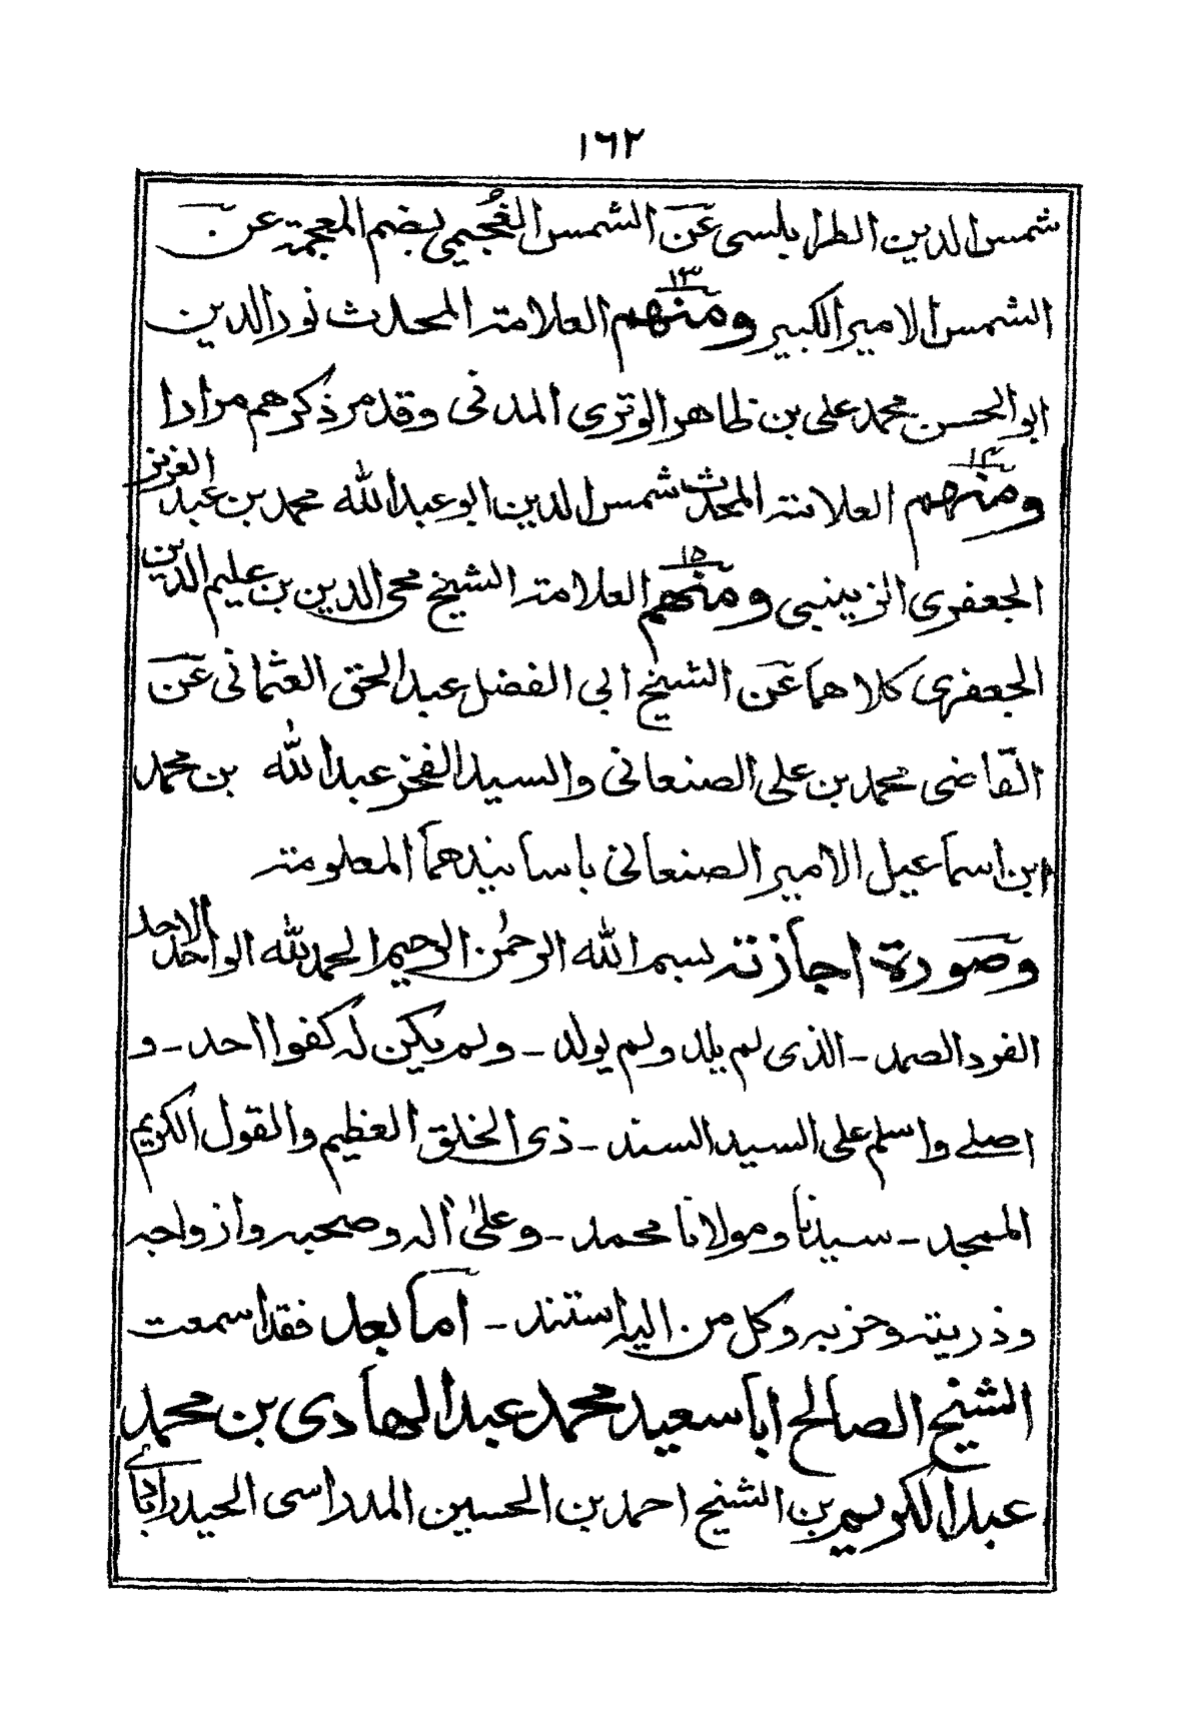 ١٦٢
شمس الدين الطرابلسى عن الشمس الفُجيمى بضم المعجمة عن
الشمس الامير الكبير ومنهم ١٣ العلامة المحدث نور الدين
ابو الحسن محمد على بن ظاهر الوترى المدنى وقد مر ذكرهم مرارا
ومنهم ١٤ العلامة المحدث شمس الدين ابو عبد الله محمد بن عبد العزيز
الجعفرى الزينبى ومنهم ١٥ العلامة الشيخ محى الدين بن عليم الدين
الجعفرى كلاهما عن الشيخ ابى الفضل عبد الحق العثمانى عن
القاضى محمد بن على الصنعانى والسيد الفخر عبد الله بن محمد
ابن اسماعيل الامير الصنعانى باسانيدهما المعلومة
وصورة اجازته بسم الله الرحمٰن الرحيم الحمد لله الواحد الاحد
الفرد الصمد - الذى لم يلد ولم يولد - ولم يكن له كفوا احد - و
اصلے واسلم على السيد السند - ذى الخلق العظيم والقول الكريم
الممجد - سيدنا ومولانا محمد - وعلىٰ اٰله وصحبه وازواجه
وذريته وحزبه وكل من اليه استند - اما بعد فقد اسمعت
الشيخ الصالح ابا سعيد محمد عبد الهادى بن محمد
عبد الكريم بن الشيخ احمد بن الحسين المدراسى الحيدرابادى